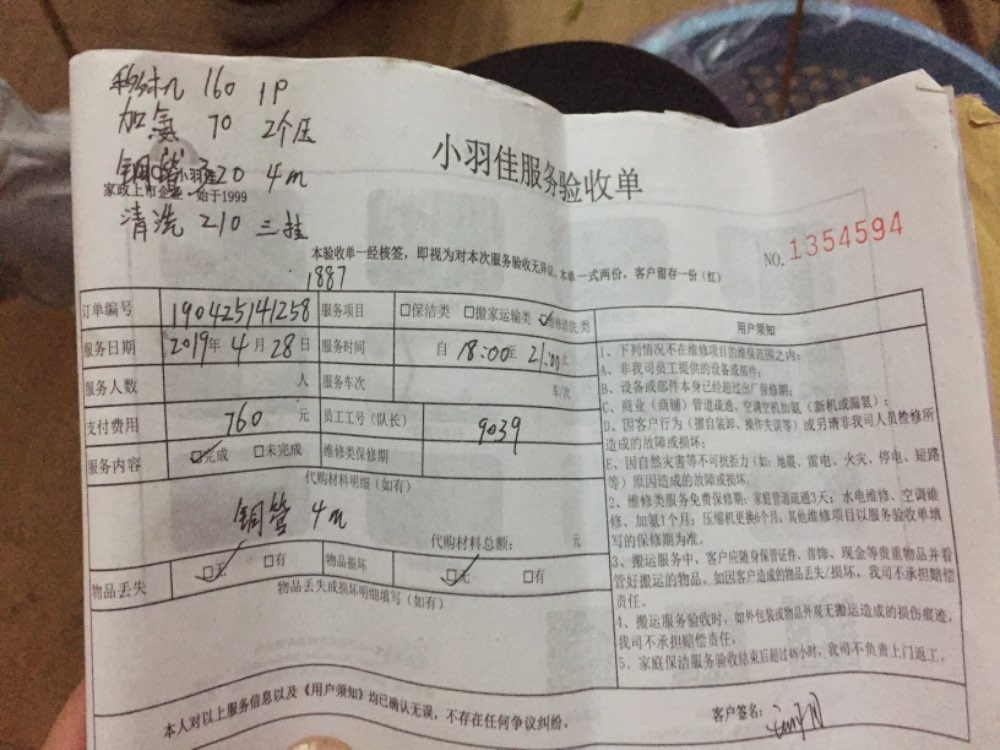 移外机 160 1P
加氨 70 2个压
铜管 320 4m
小羽佳
家政上市企业 始于1999
清洗 210 三挂
小羽佳服务验收单
NO. 1354594
本验收单一经核签，即视为对本次服务验收无异议。本单一式两份，客户留存一份（红）
1887
订单编号 190425141258 服务项目 □保洁类 □搬家运输类 ☑维修清洗类
服务日期 2019年 4月 28日 服务时间 自 18:00 至 21:00 止
服务人数 人 服务车次 车/次
支付费用 760 元 员工工号（队长） 9039
服务内容 ☑完成 □未完成 维修类保修期
代购材料明细（如有）
铜管 4m
代购材料总额： 元
物品丢失 ☑无 □有 物品损坏 ☑无 □有
物品丢失或损坏明细填写（如有）
用户须知
1、下列情况不在维修项目的维保范围之内：
A、非我司员工提供的设备或部件；
B、设备或部件本身已经超过出厂保修期；
C、商业（商铺）管道疏通、空调空机加氨（新机或漏氨）；
D、因客户行为（擅自装卸、操作失误等）或另请非我司人员检修所
造成的故障或损坏；
E、因自然灾害等不可抗拒力（如：地震、雷电、火灾、停电、短路
等）原因造成的故障或损坏。
2、维修类服务免费保修期：家庭管道疏通3天；水电维修、空调维
修、加氨1个月；压缩机更换6个月。其他维修项目以服务验收单填
写的保修期为准。
3、搬运服务中，客户应随身保管证件、首饰、现金等贵重物品并看
管好搬运的物品。如因客户造成的物品丢失/损坏，我司不承担赔偿
责任。
4、搬运服务验收时，如外包装或物品外观无搬运造成的损伤痕迹，
我司不承担赔偿责任。
5、家庭保洁服务验收结束后超过48小时，我司不负责上门返工。
本人对以上服务信息以及《用户须知》均已确认无误，不存在任何争议纠纷。
客户签名：